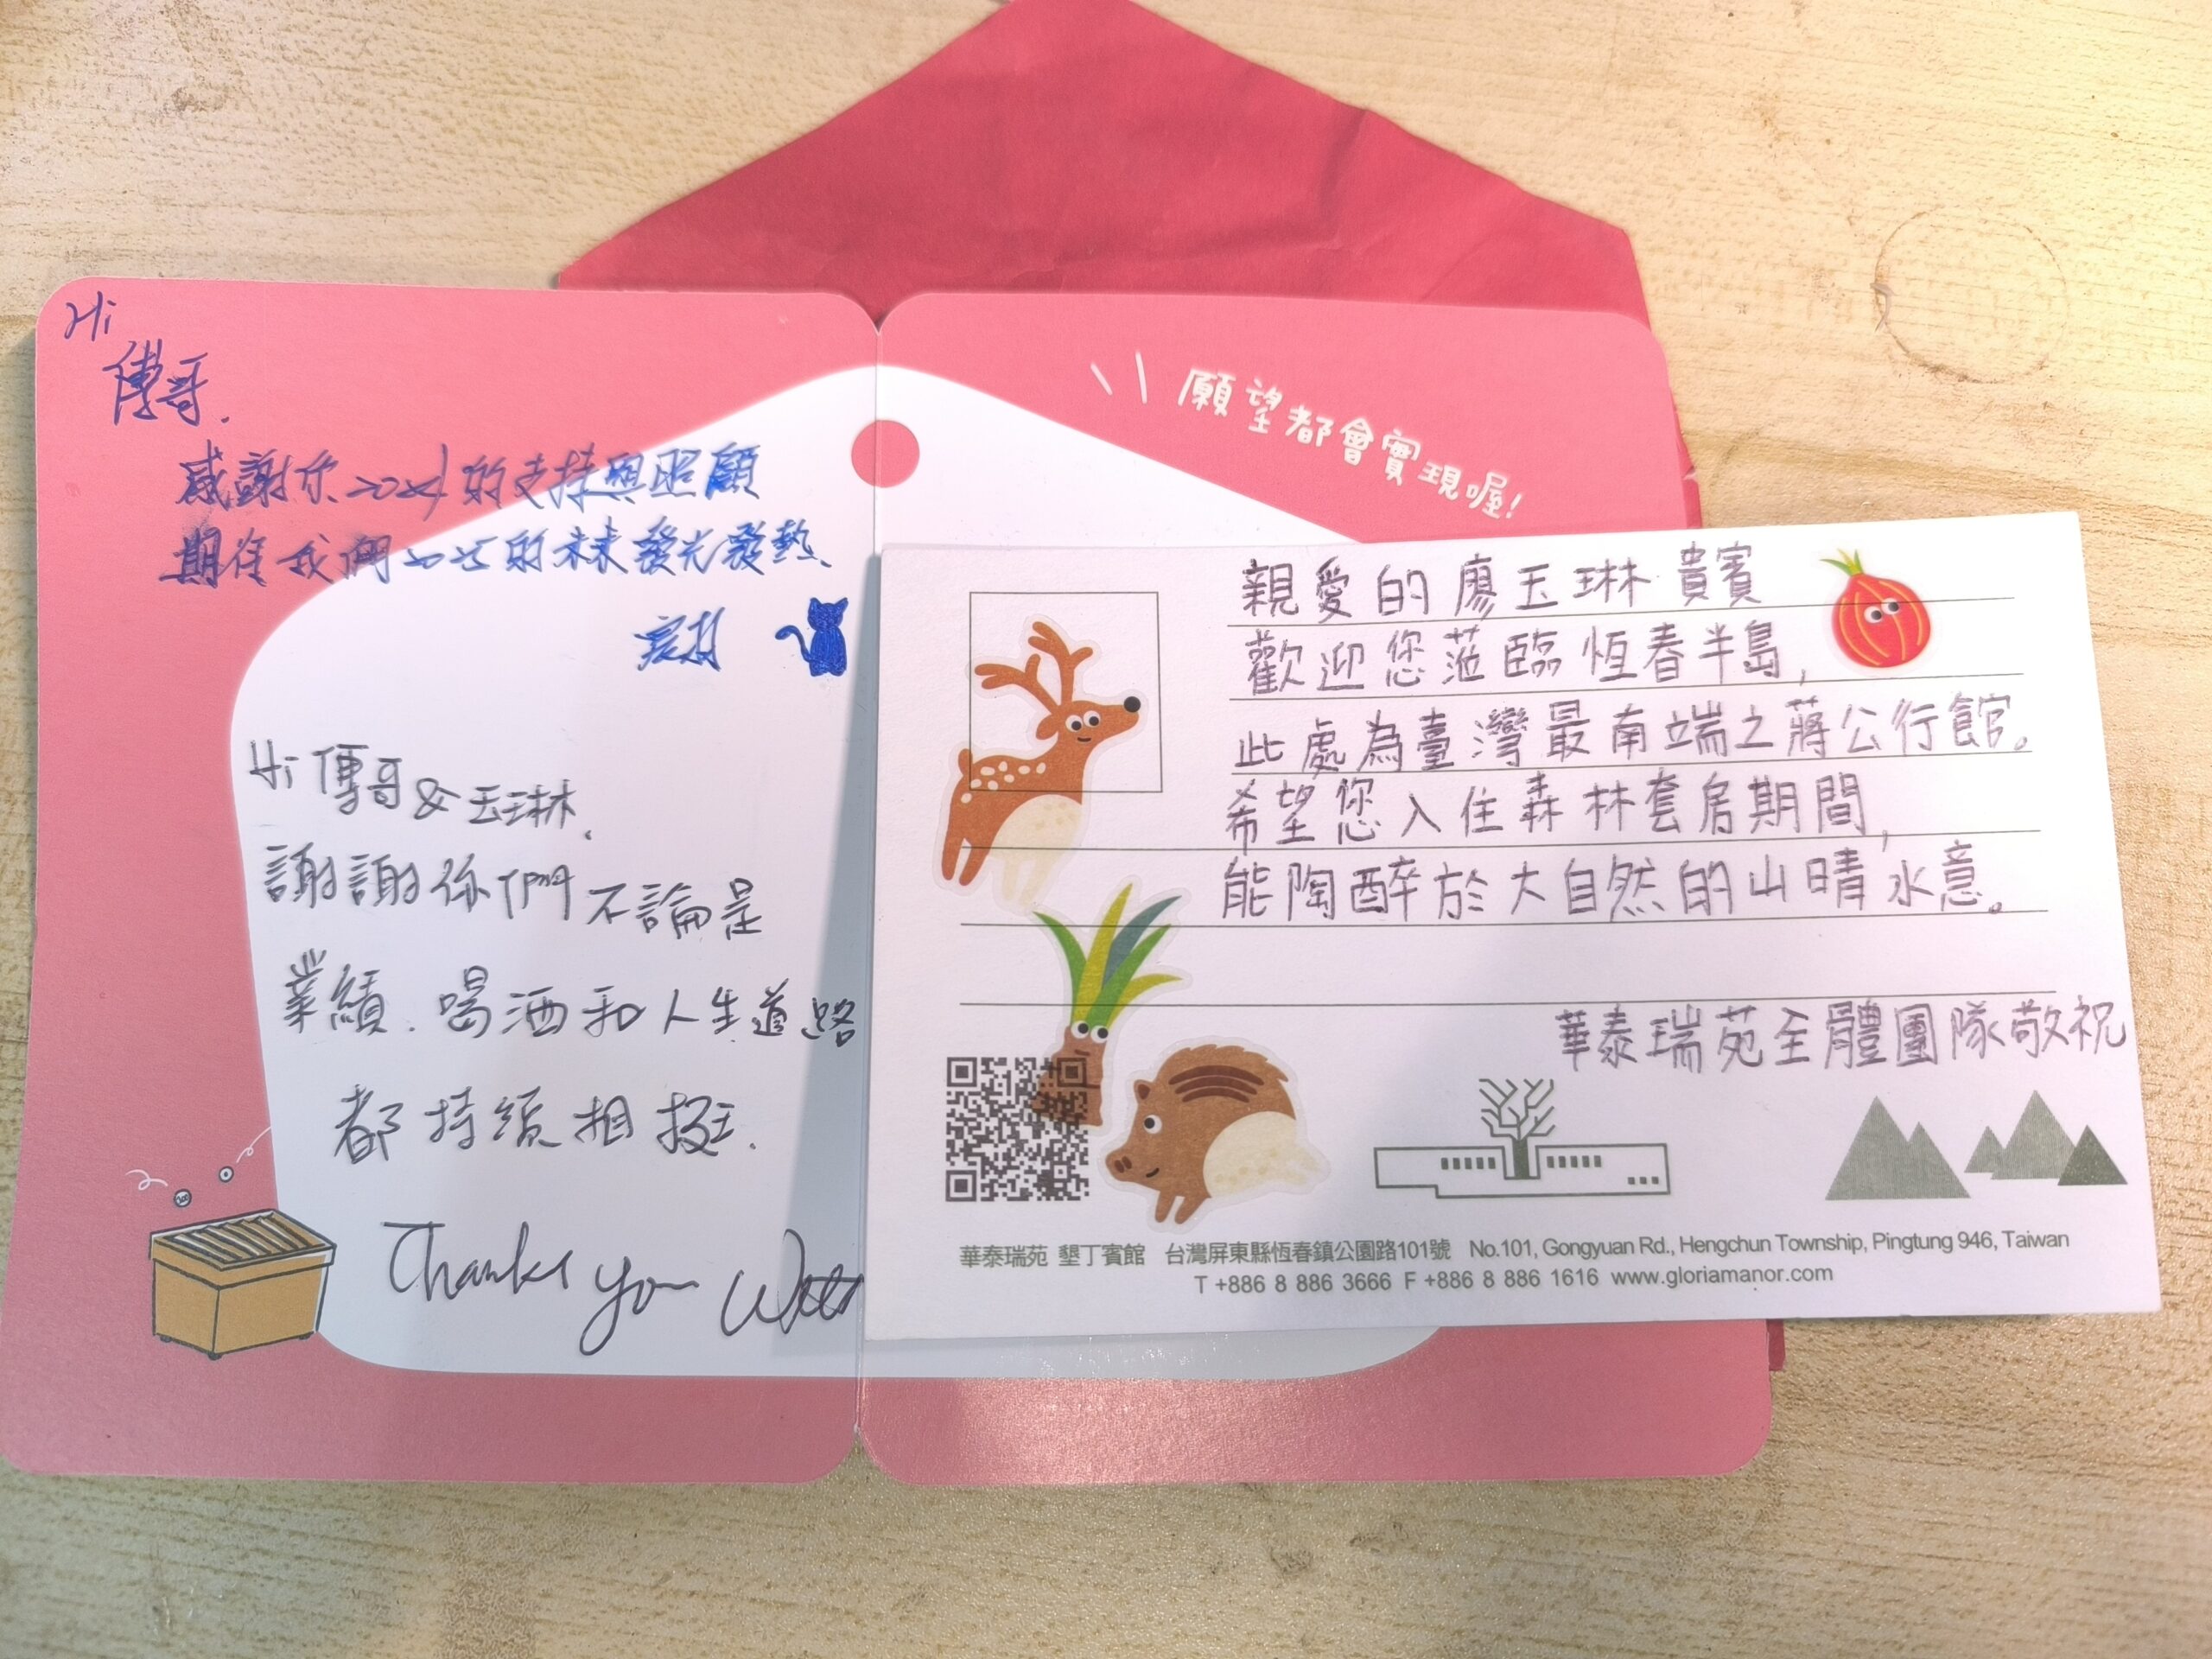 Hi
傳哥.
感謝你2024的支持與照顧
期待我們2025的未來發光發熱.
Hi 傳哥 & 玉琳.
謝謝你們 不論是
業績. 喝酒和人生道路
都持續相挺.
Thanks you
願望都會實現喔!
親愛的廖玉琳貴賓
歡迎您蒞臨恆春半島,
此處為臺灣最南端之蔣公行館。
希望您入住森林套房期間,
能陶醉於大自然的山晴水意。
華泰瑞苑全體團隊敬祝
華泰瑞苑 墾丁賓館 台灣屏東縣恆春鎮公園路101號 No.101, Gongyuan Rd., Hengchun Township, Pingtung 946, Taiwan
T +886 8 886 3666 F +886 8 886 1616 www.gloriamanor.com